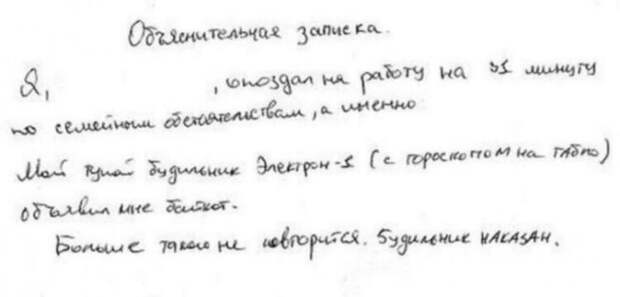 Объяснительная записка.
Я, , опоздал на работу на минуту
по семейным обстоятельствам, а именно
Мой тупой будильник Электрон-1 (с гороскопом на табло)
объявил мне бойкот.
Больше такого не повторится. Будильник НАКАЗАН.